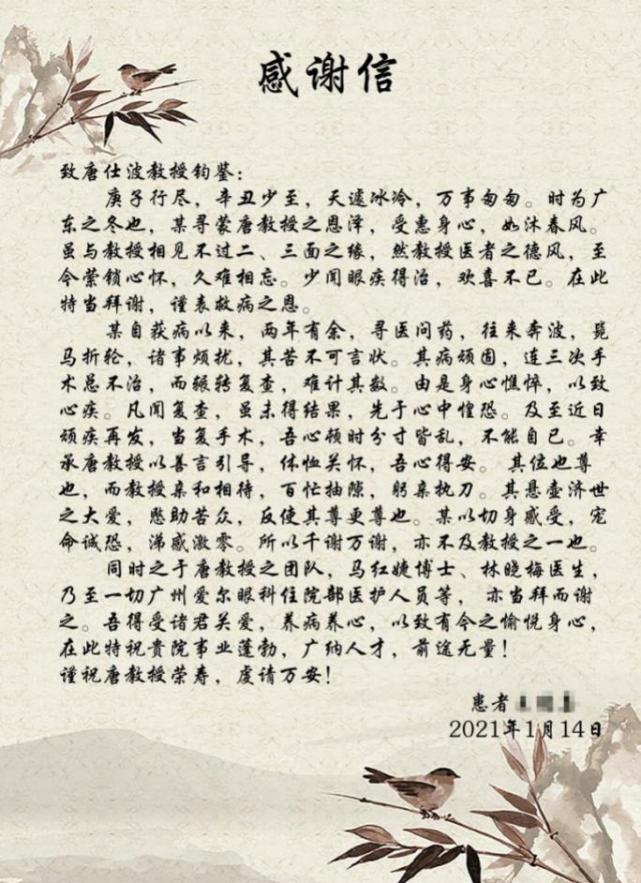 感谢信
致唐仕波教授钧鉴：
庚子行尽，辛丑少至，天遽冰冷，万事匆匆。时为广
东之冬也，某寻蒙唐教授之恩泽，受惠身心，如沐春风。
虽与教授相见不过二、三面之缘，然教授医者之德风，至
今萦锁心怀，久难相忘。少闻眼疾得治，欢喜不已。在此
特当拜谢，谨表救病之恩。
某自获病以来，两年有余，寻医问药，往来奔波，毙
马折轮，诸事烦扰，其苦不可言状。其病顽固，连三次手
术总不治，而辗转复查，难计其数。由是身心憔悴，以致
心疾。凡闻复查，虽未得结果，先于心中惶恐。及至近日
顽疾再发，当复手术，吾心顿时分寸皆乱，不能自已。幸
承唐教授以善言引导，体恤关怀，吾心得安。其位也尊
也，而教授亲和相待，百忙抽隙，躬亲执刀。其悬壶济世
之大爱，愍助苦众，反使其尊更尊也。某以切身感受，宠
命诚恐，涕感激零。所以千谢万谢，亦不及教授之一也。
同时之于唐教授之团队，马红婕博士、林晓梅医生，
乃至一切广州爱尔眼科住院部医护人员等，亦当拜而谢
之。吾得受诸君关爱，养病养心，以致有今之愉悦身心，
在此特祝贵院事业蓬勃，广纳人才，前途无量！
谨祝唐教授荣寿，虔请万安！
患者
2021年1月14日